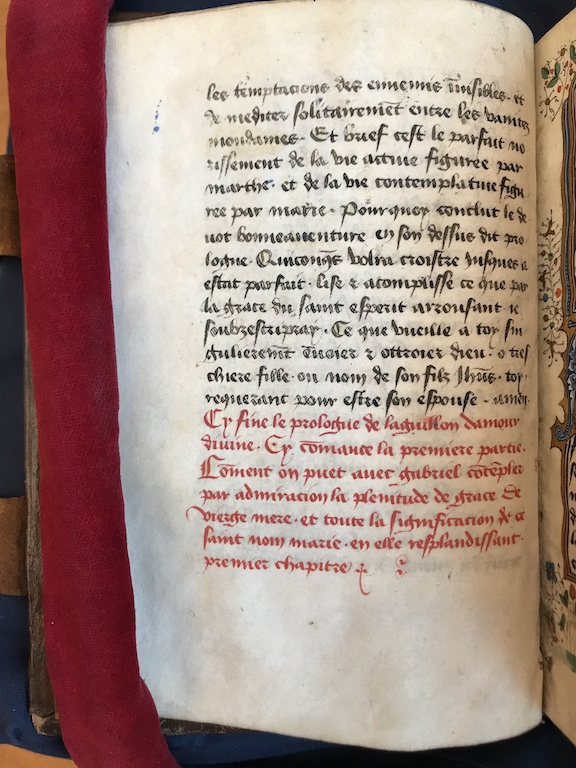 les temptacions des ennemis īuisibles. et
de mediter solitairemēt entre les vanitez
mondames. Et brief cest le parfait no
rissement de la vie actiue figuree par
marthe. et de la vie contemplatiue figu
ree par marie. Pourquoy conclut le de
uot bonneauenture en son dessus dit pro
logue. Quiconqs volra croistre iusques a
estat parfait. lise & acomplisse ce que par
la grace du saint esperit arrousant ie
soubzescripray. Ce que vueille a toy sin
gulieremēt ēuoier & ottroier dieu. o tres
chiere fille. ou nom de son filz Jhūs. toy
requerant pour estre son espouse. amen
Cy fine le prologue de laguillon damour
diuine. Cy cōmance la premiere partie.
Cōment on puet auec gabriel cōtēpler
par admiracion la plenitude de grace de
vierge mere. et toute la signification de ce
saint nom marie. en elle resplandissant.
premier chapitre